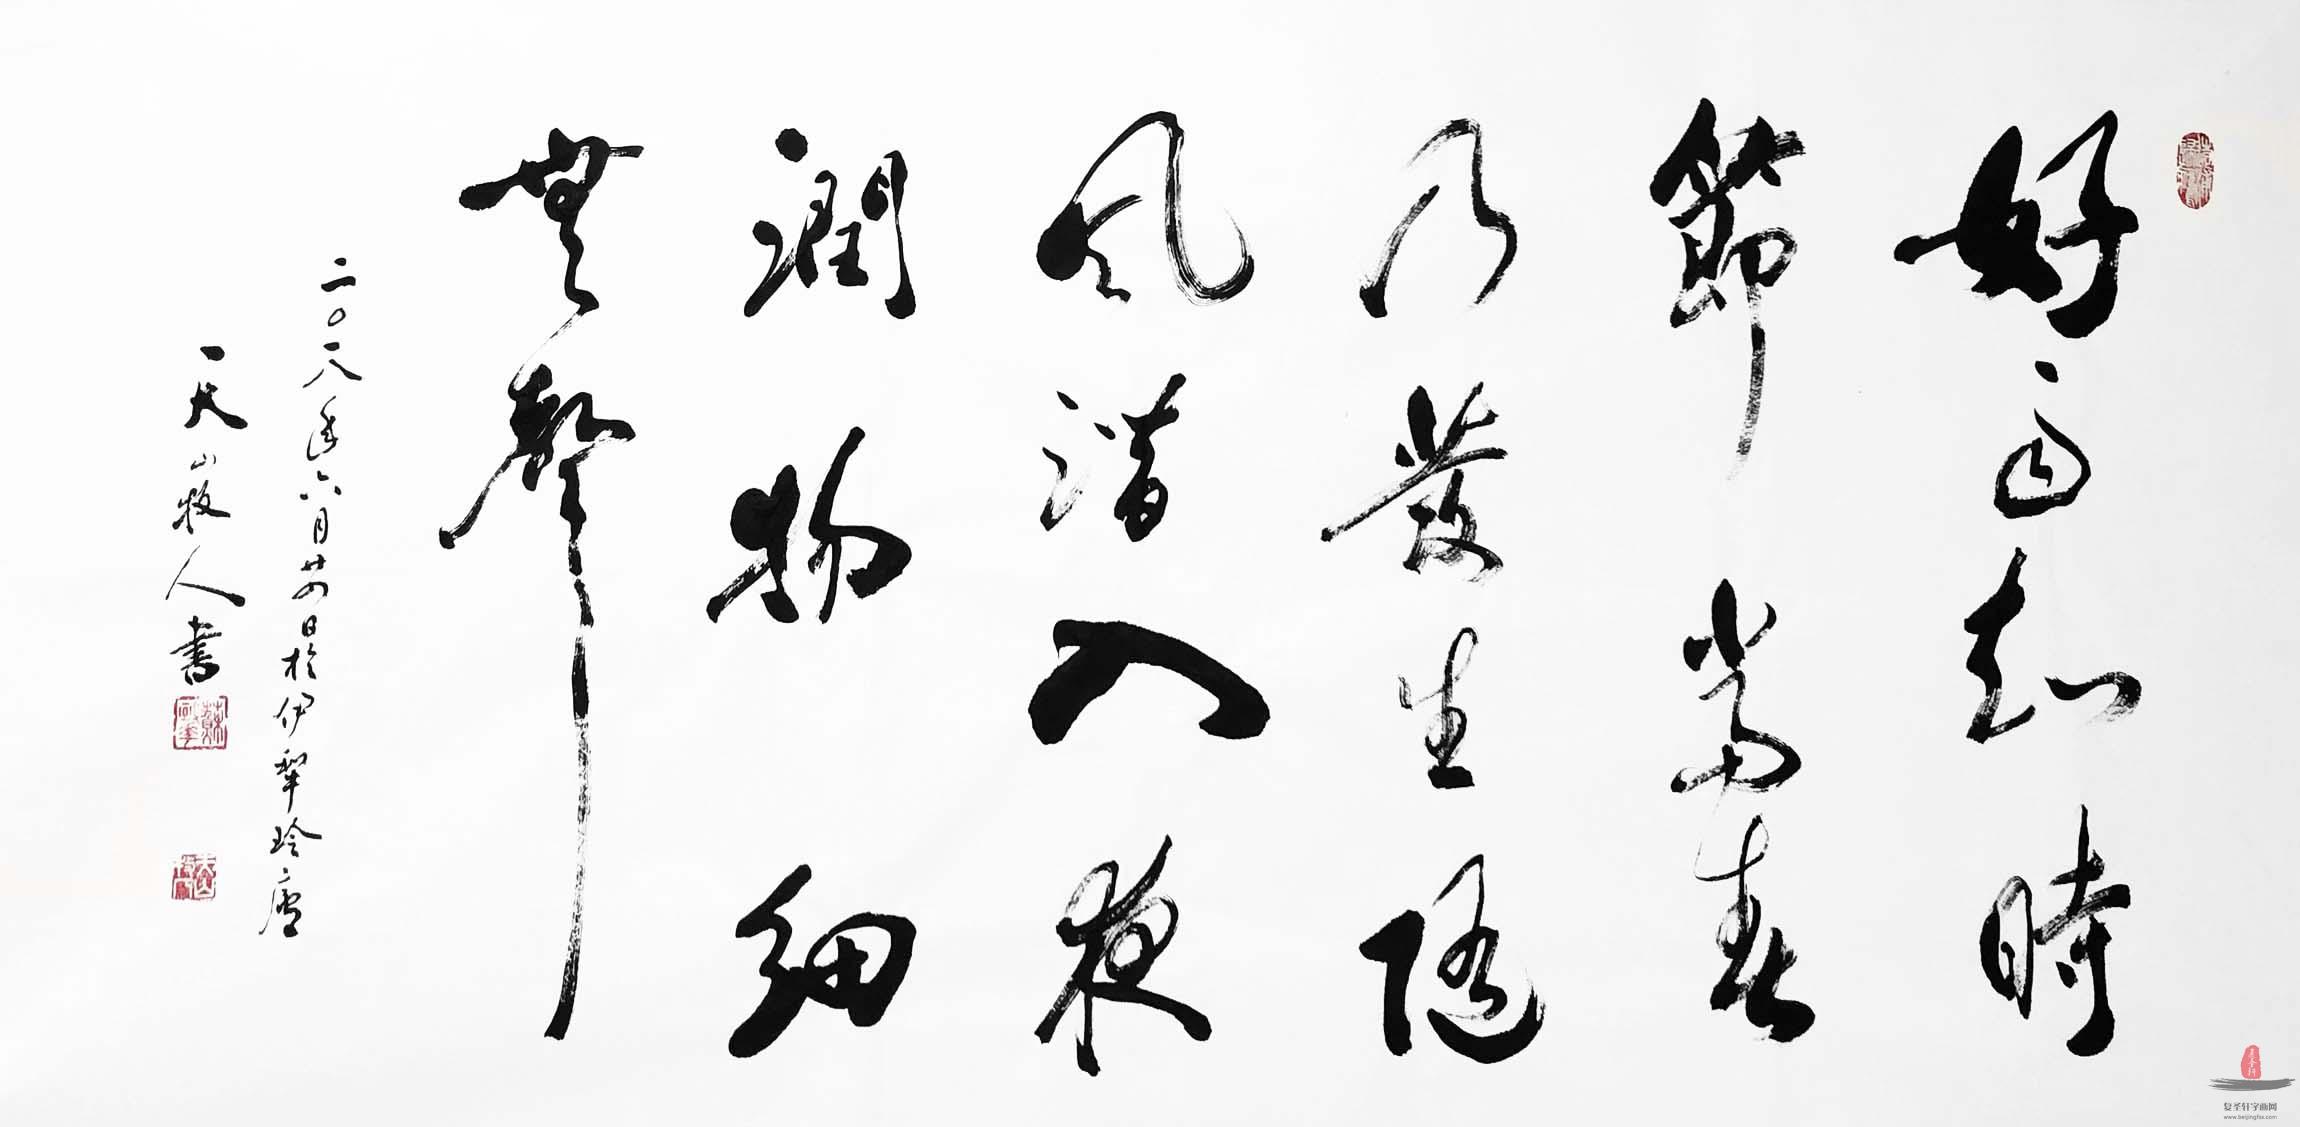 好雨知時
節當春
乃發生隨
風潛入夜
潤物細
無聲
二〇一八年六月廿四日於伊犁玲廬
天山牧人書
复圣轩字画网
www.beijingfsx.com